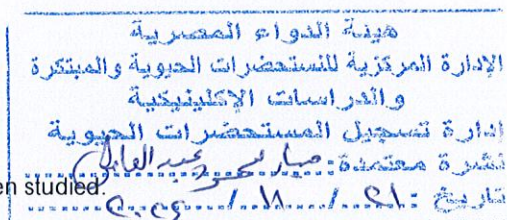 هيئة الدواء المصرية
الإدارة المركزية للمستحضرات الحيوية والمبتكرة
والدراسات الإكلينيكية
إدارة تسجيل المستحضرات الحيوية
نشرة معتمدة:
en studied.
تاريخ :